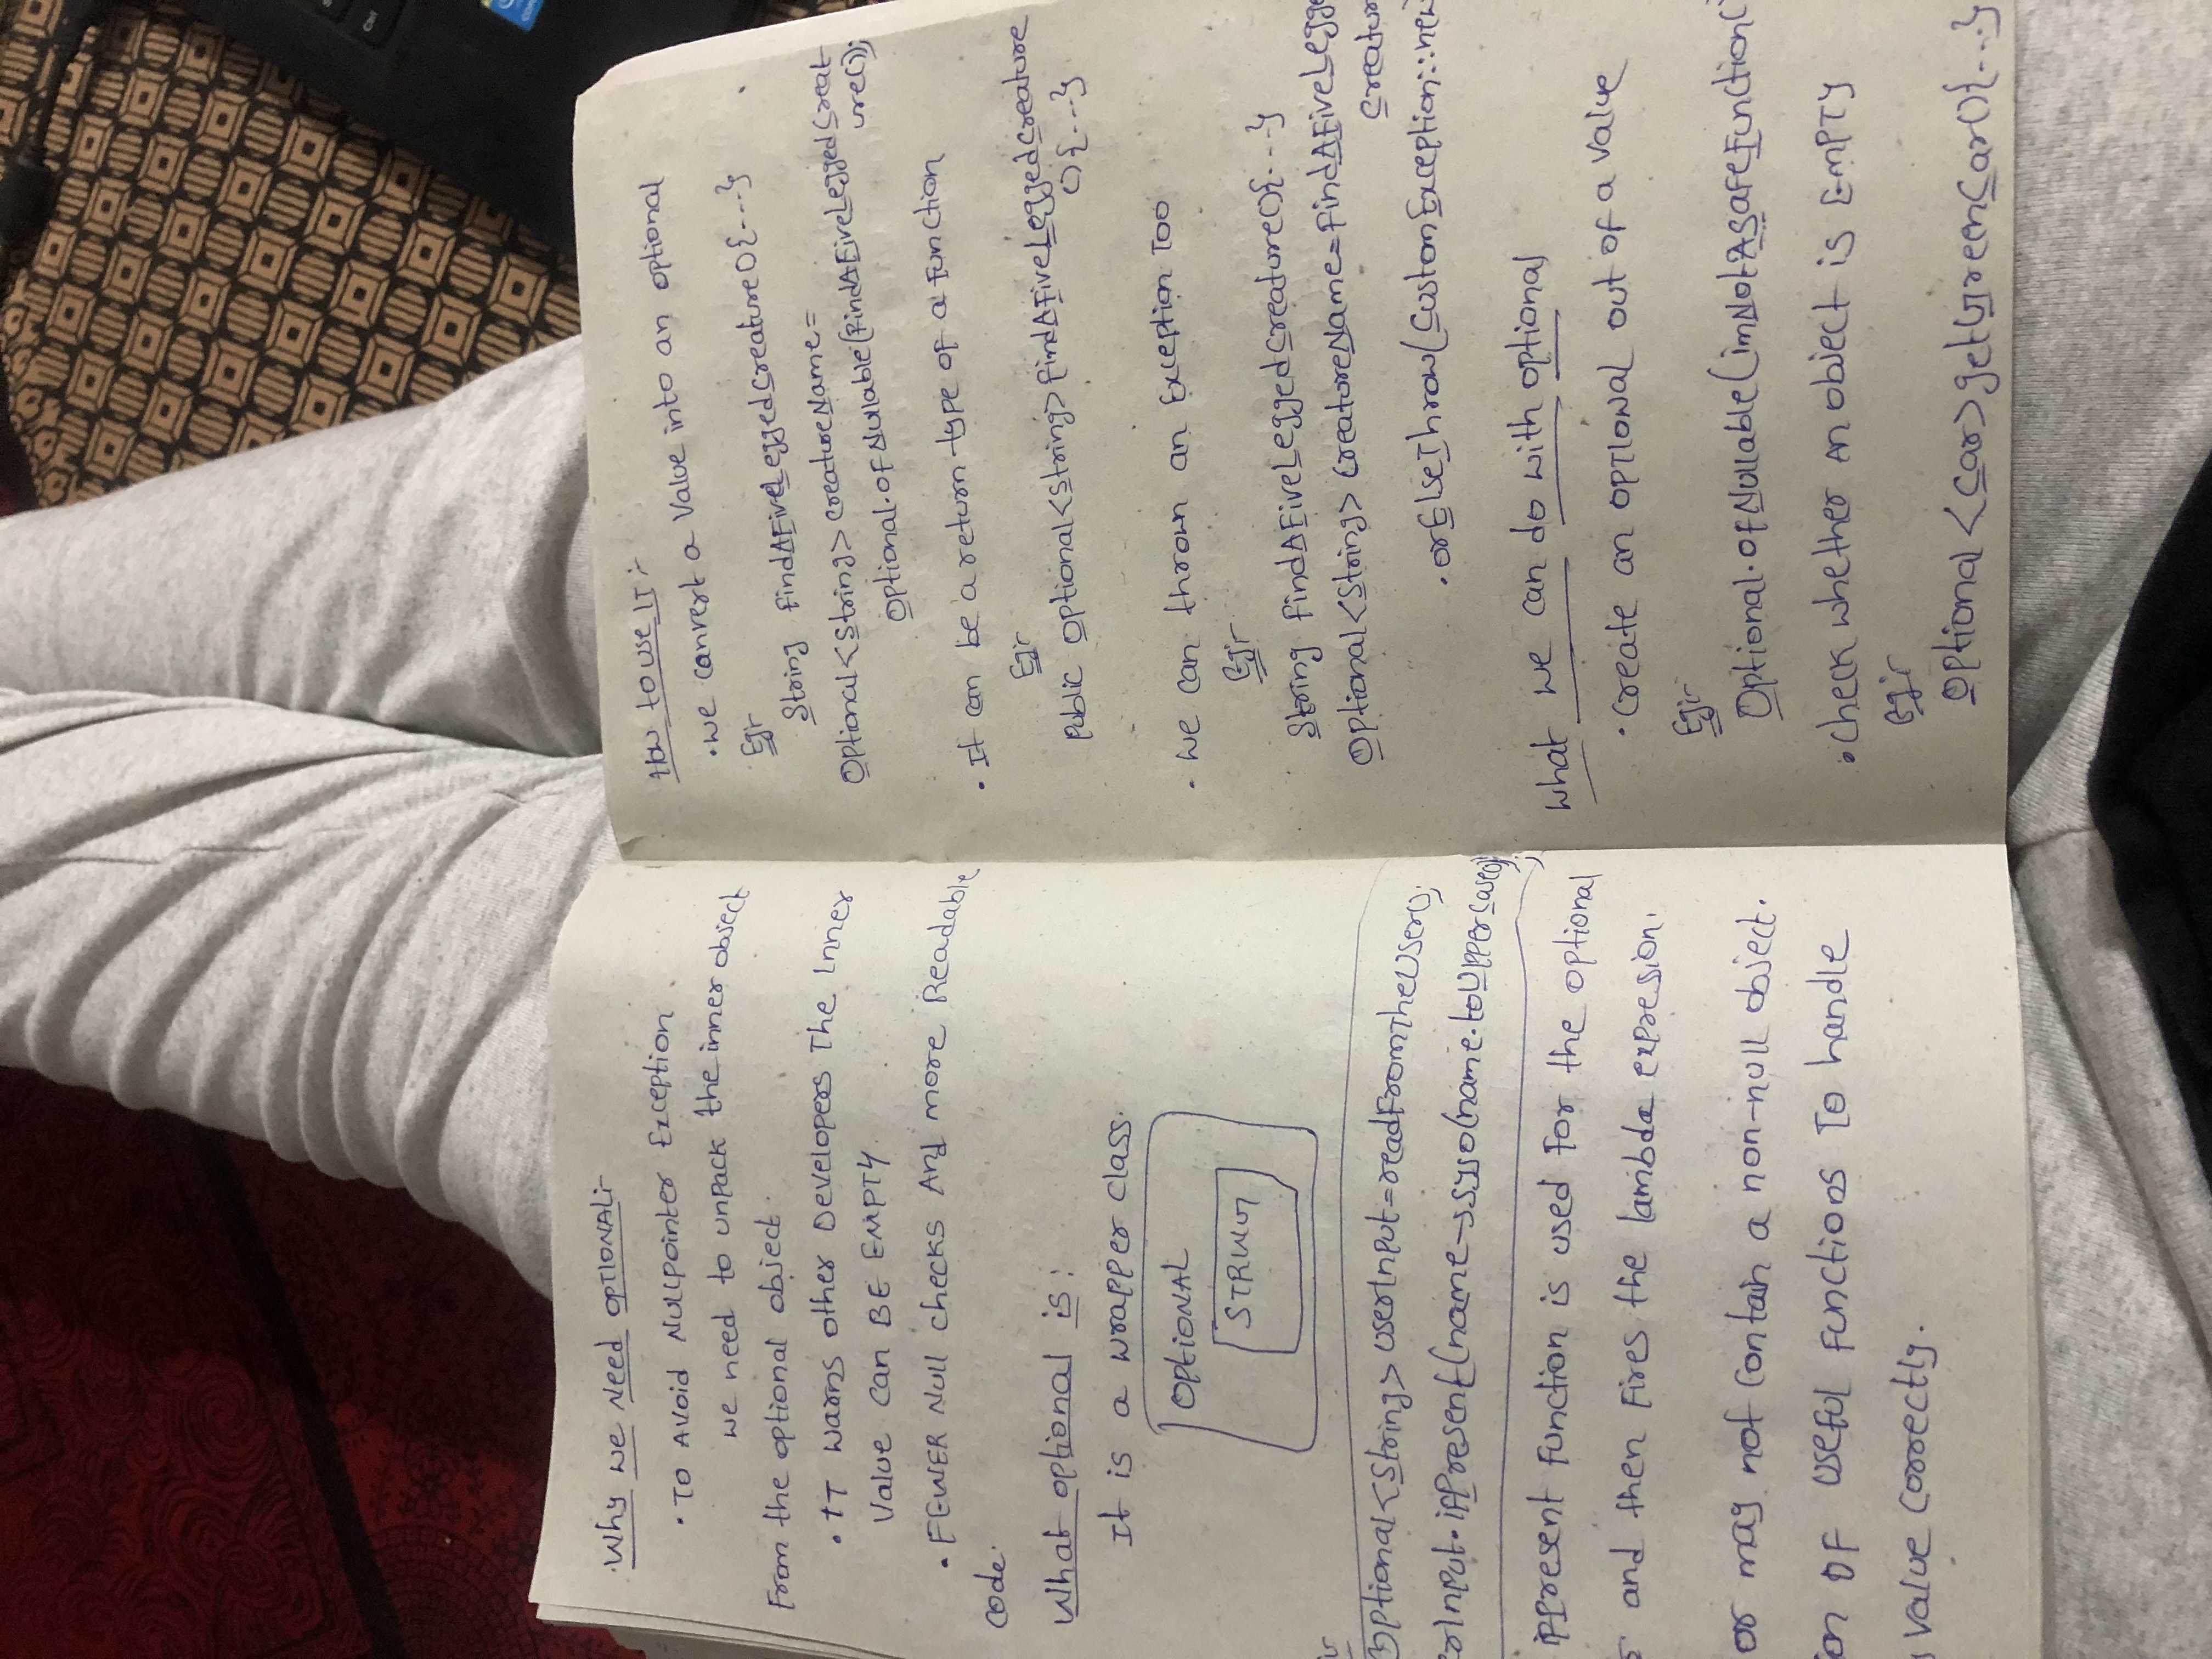 Why we Need OPTIONAL:-
• TO AVOID NULLPointer Exception
we need to unpack the inner object
From the optional object.
• IT warns other Developers The Inner
Value can BE EMPTY.
• FEWER Null checks And more Readable
code.
What optional is:
It is a wrapper class.
OptIONAL
STRING
Optional<String> userInput=readFromTheUser();
erInput.ifPresent(name->syso(name.toUpperCase());
ifPresent function is used for the optional
and then Fires the lambda expresion.
or may not contain a non-null object.
ion OF useful functions To handle
value correctly.
How to use IT :-
• we canvert a value into an optional
Eg:-
String findAFiveLeggedCreature(){---}
Optional<String> creatureName=
Optional.ofNullable(findAFiveLeggedCreat-
ure());
• It can be a return-type of a function
Eg:-
public Optional<String> findAFiveLeggedCreature
(){---}
• We can thrown an Exception Too
Eg:-
String findAFiveLeggedCreature(){---}
Optional<String> CreatureName=findAFiveLegge
Creatur
.orElseThrow(CustomException::new
what we can do with optional
• Create an OPTIONAL out of a value
Eg:-
Optional.ofNullable(imNotASafeFunction(
• Check whether An object is EMPTY
Eg:-
Optional <Car> getGreenCar(){---}
Ctrl